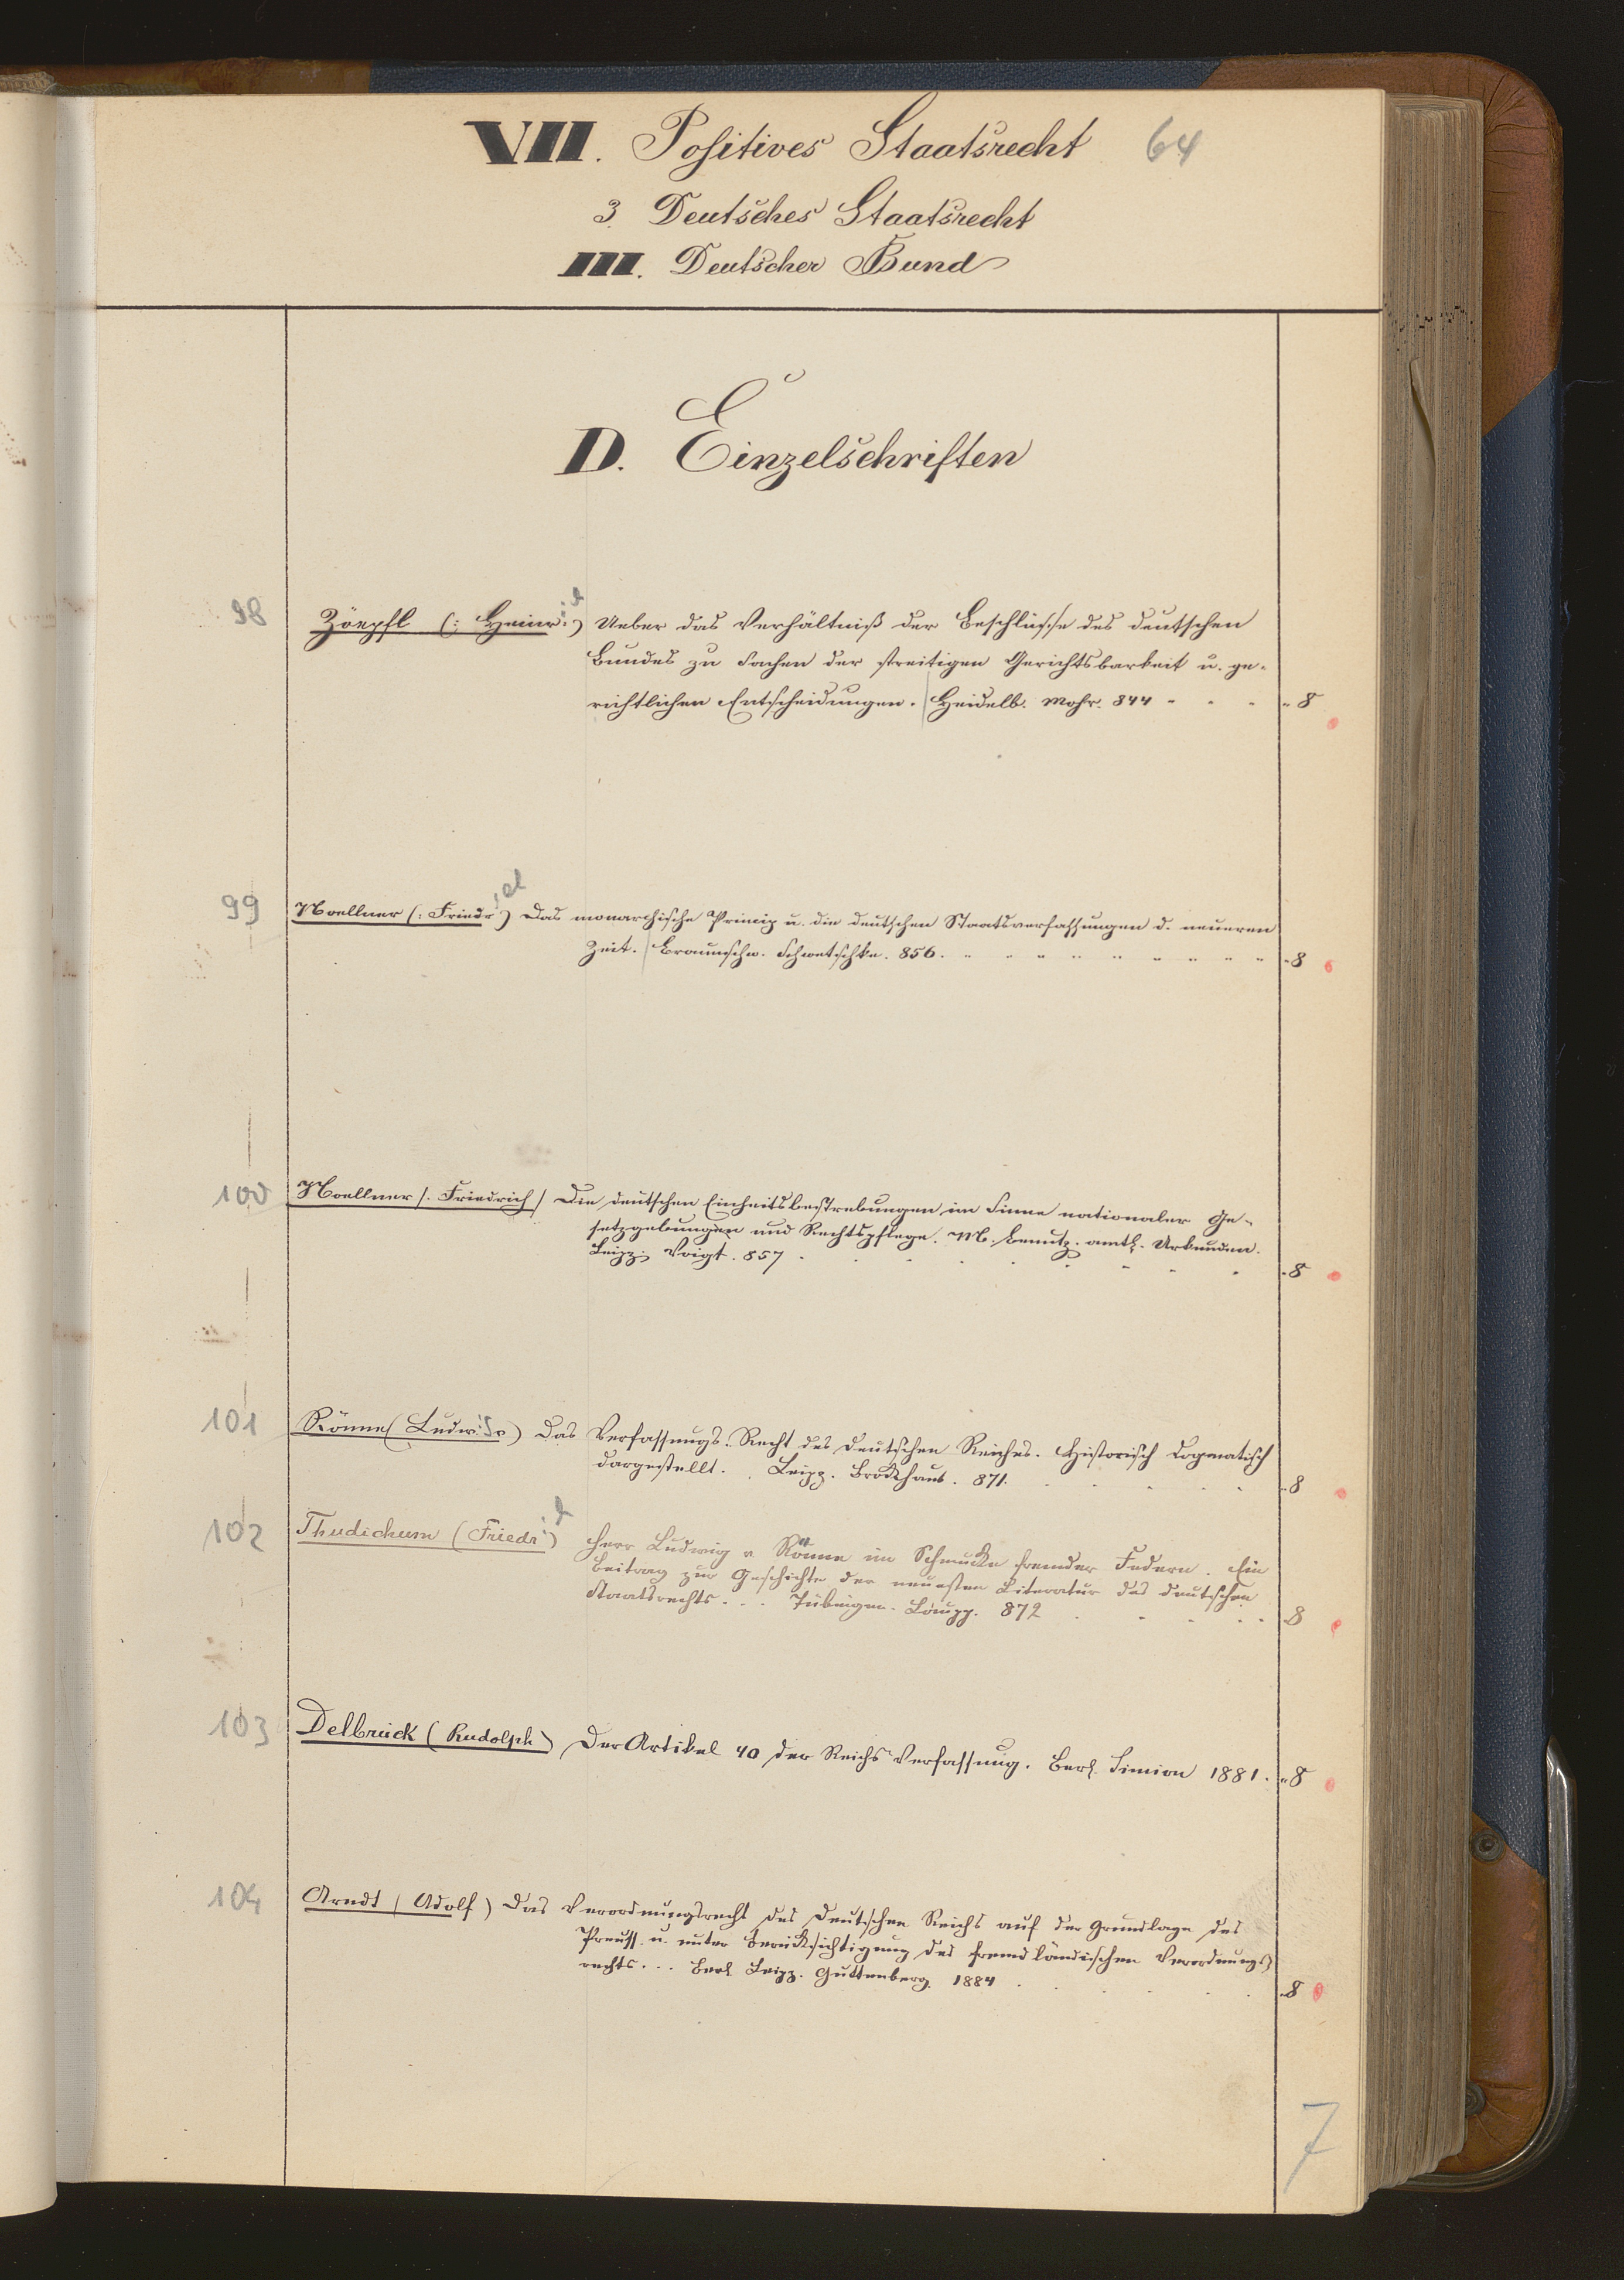 VII. Positives Staatsrecht 64
3. Deutsches Staatsrecht
III. Deutscher Bund
D. Einzelschriften
98 Zöepfl (: Heinr:) Ueber das Verhältniß der Beschlüsse des deutschen
Bundes zu Sachen der streitigen Gerichtsbarkeit u. ge-
richtlichen Entscheidungen. Heidelb. Mohr. 844 - - - - 8
99 Noellner (: Friedr:) Das monarchische Princip u. die deutschen Staatsverfassungen d. neueren
Zeit. Braunschw. Schwetschke. 856. - 8
100 Noellner /: Friedrich / Die deutschen Einheitsbestrebungen im Sinne nationaler Ge-
setzgebungen und Rechtspflege. M. Benutz. amtl. Urkunden.
Leipz. Voigt. 857 . . . . . . . . - 8
101 Rönne (Ludw:) Das Verfassungs-Recht des Deutschen Reiches. Historisch dogmatisch
dargestellt. . Leipz. Brockhaus. 871. . . . . . - 8
102 Thudichum (Friedr:) Herr Ludwig v Rönne im Schmucke fremder Federn. Ein
Beitrag zur Geschichte der neuesten Literatur des deutschen
Staatsrechts. . . Tübingen. Laupp. 872 . . . . . 8
103 Delbrück (Rudolph) Der Artikel 40 der Reichs Verfassung. Berl. Simion 1881. - 8
104 Arndt (Adolf) Das Verordnungsrecht des Deutschen Reichs auf der Grundlage des
Preuss. u. unter Berücksichtigung des fremdländischen Verordnungs
rechts. . . Berl. Leipz. Guttenberg. 1884 . . . . . . - 8
7